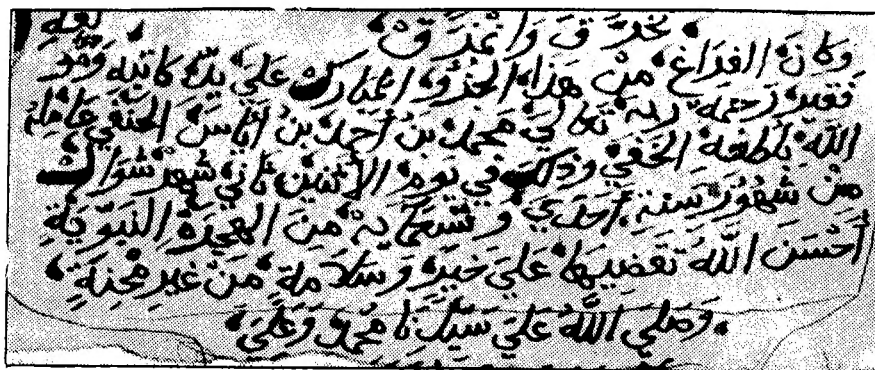 وَانْمَزَقْ
وَكَانَ الفراغ مِنْ هَذَا الجزؤ المبَارك عَلَي يَد كَاتبه
فقير رَحمة ربه تعالي محمد بن أحمد بن أيَاسَ الحنَفي عَامله
اللّه بلطفه الخفي وذلك في يَوم الأثنين ثاني شهر شوال
منْ شهُورْ سَنَةِ احَدي وتسعمَايه منَ الهجرة النبَويَّة
أحْسَنَ اللّه تقضيهَا عَلَي خيرٍ وَسَلامةٍ مَنْ غَيرِ محْنَةٍ
وَصَلي اللَّهُ عَلَي سَيّدنَا محمد وَعَلَي